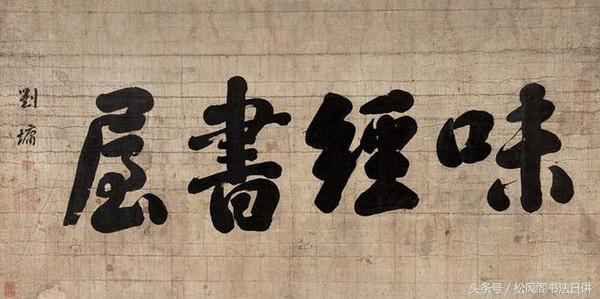 味經書屋
劉墉
头条号/松风阁书法日讲